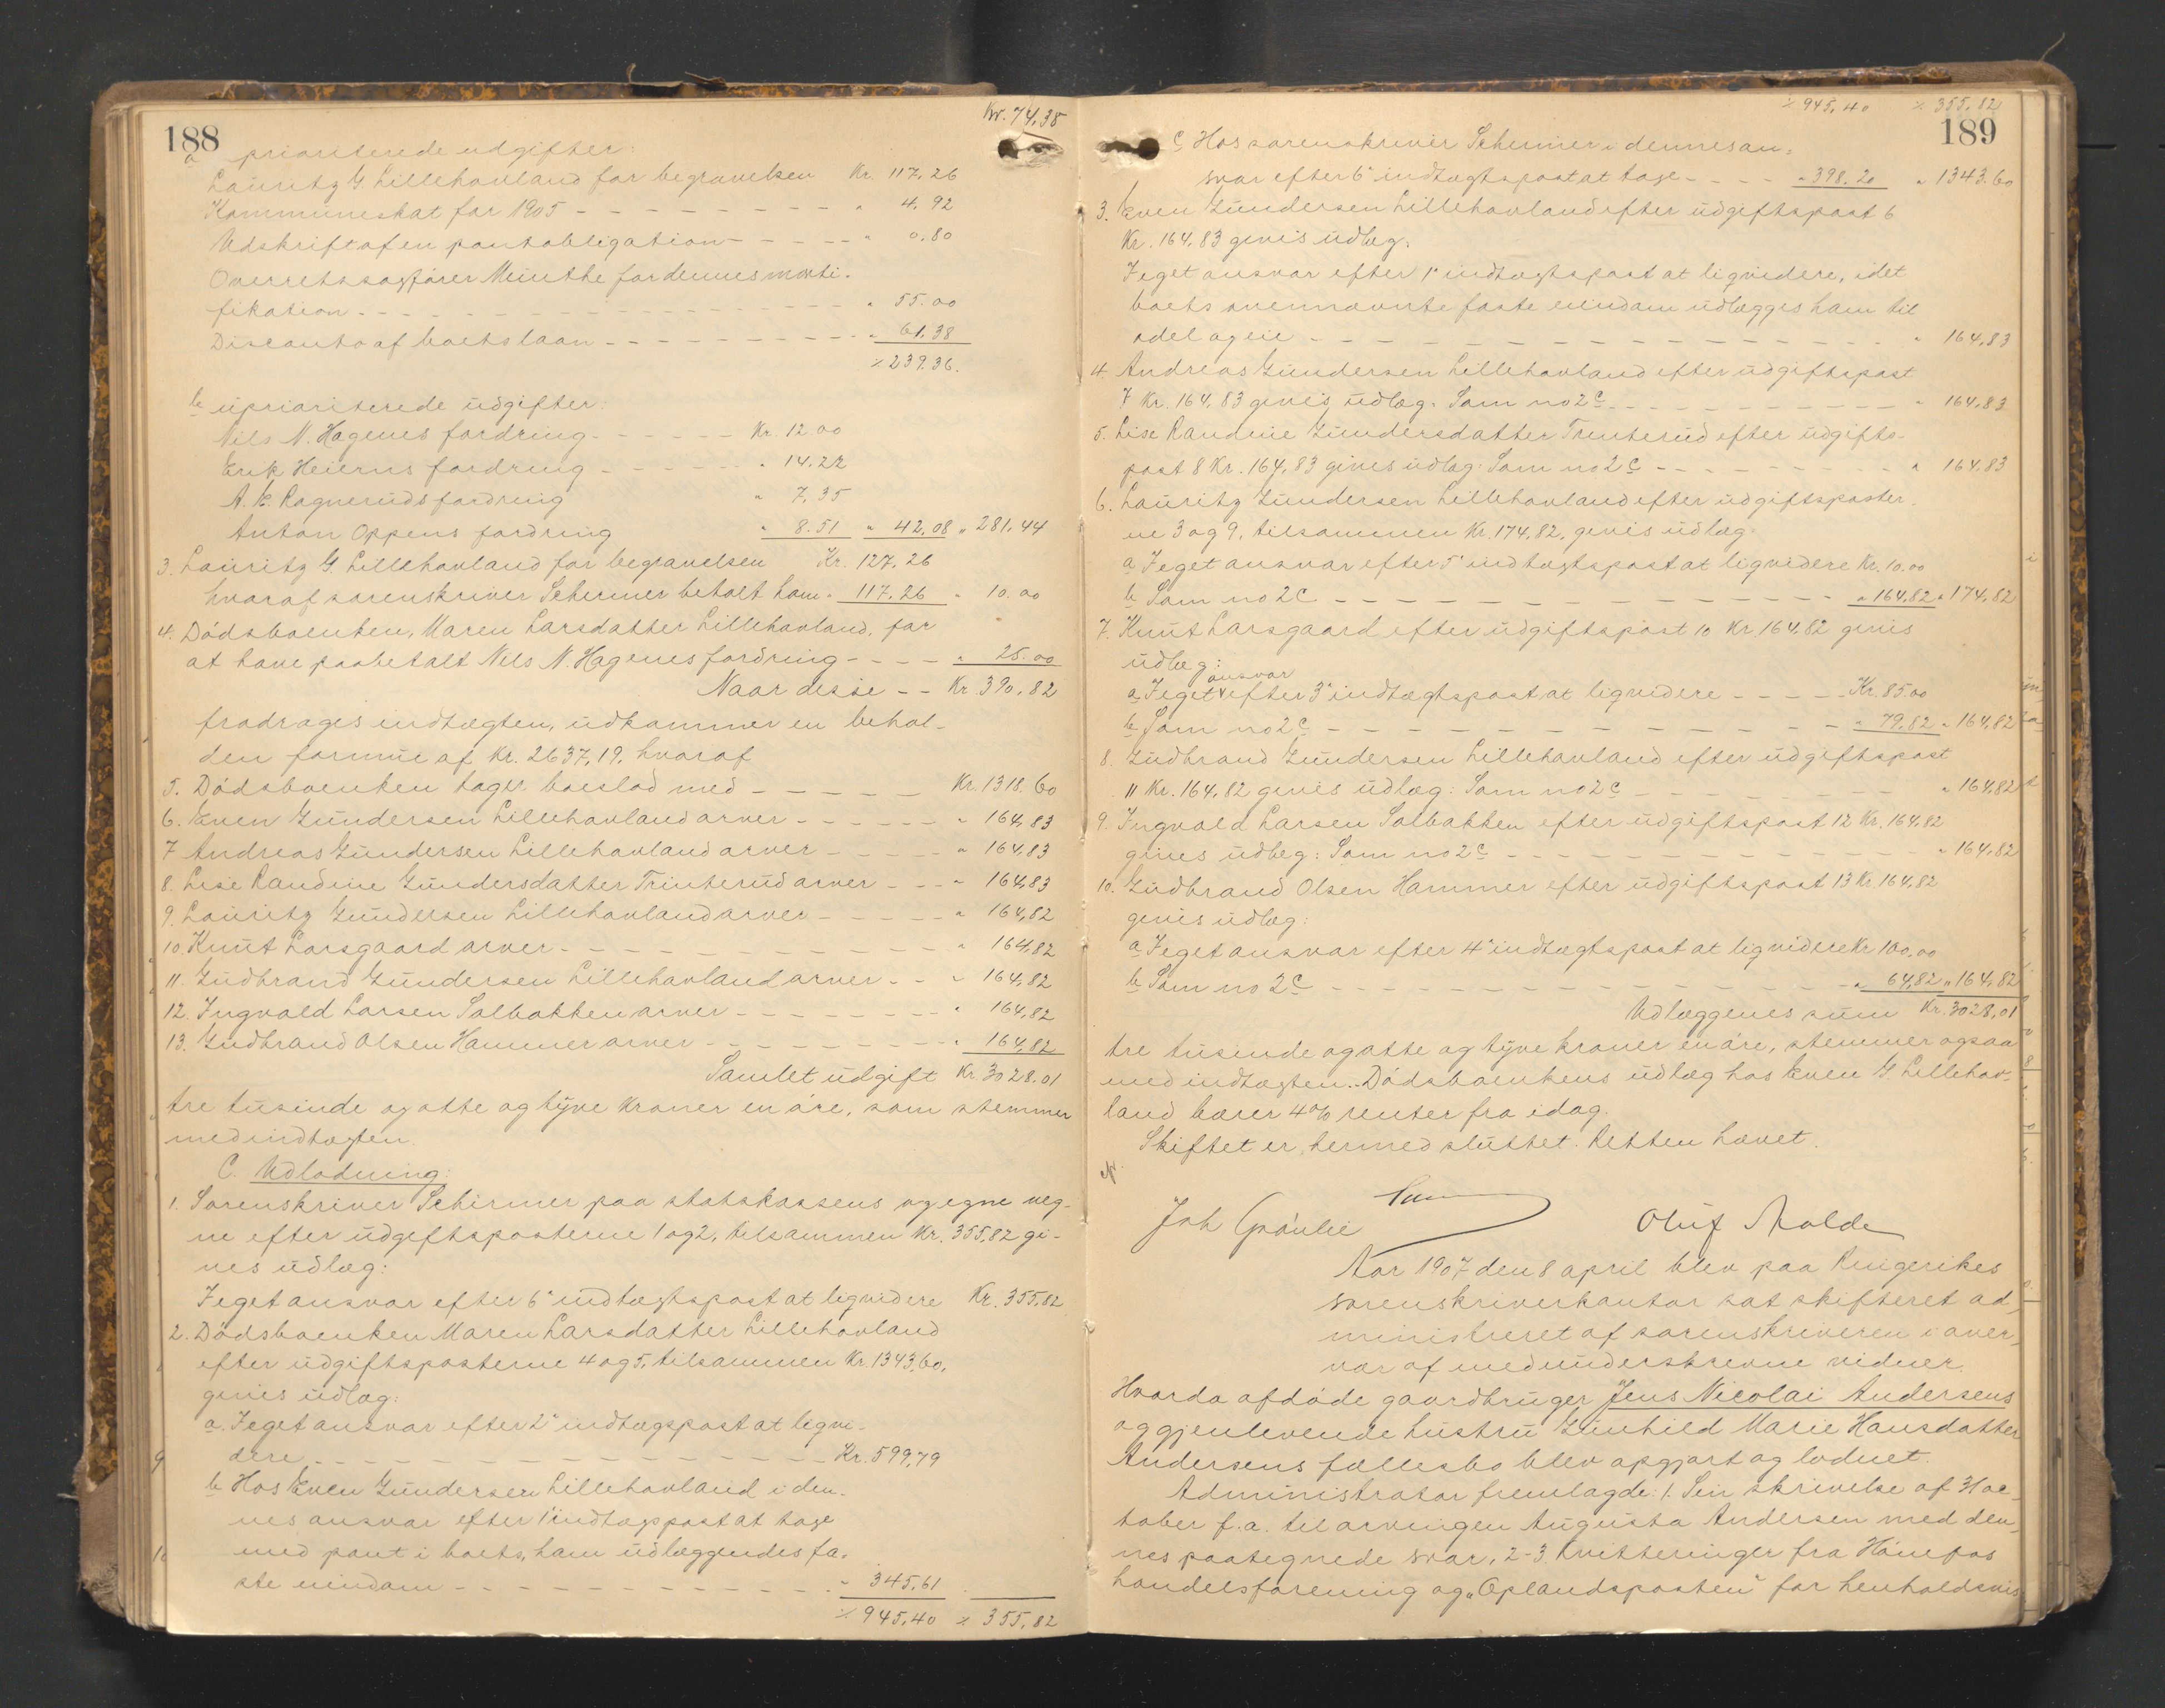 188
Kr. 74,38
a prioriterede udgifter:
Lauritz G. Lillehovland for begravelsen Kr. 117,26
Kommuneskat for 1905 - - - " 4,92
Udskrift af en pantobligation - - - " 0,80
Overretssagfører Meinthe for dennes morti-
fikation - - - " 55.00
Disconto af boets laan - - - " 61.38
% 239.36.
b upriariterede udgifter:
Nils N. Hagenes fordring - - - Kr. 12.00
Erik Heierns fordring - - - " 14.22
A. K. Ragneruds fordring " 7,35
Anton Oppens fordring " 8.51 " 42,08 " 281,44
3. Lauritz G. Lillehovland for begravelsen Kr. 127,26
hvoraf sorenskriver Schirmer betalt ham " 117.26 " 10.00
4. Dödsboenken, Maren Larsdatter Lillehovland, for
at have paabetalt Nils N. Hagenes fordring - - - " 25.00
Naar disse - - Kr. 390,82
fradrages indtægten, udkommer en behol-
den formue af Kr. 2637,19, hvoraf
5. Dödsboenken tager boeslod med - - - Kr. 1318.60
6. Even Gundersen Lillehovland arver - - - " 164,83
7 Andreas Gundersen Lillehovland arver - - - " 164,83
8. Lise Randine Gundersdatter Trinterud arver - - - " 164,83
9. Lauritz Gundersen Lillehovland arver - - - " 164,82
10 Knut Larsgaard arver - - - " 164,82
11. Gudbrand Gundersen Lillehovland arver - - " 164,82
12. Ingvald Larsen Solbakken arver - - - " 164,82
13. Gudbrand Olsen Hammer arver - - - " 164,82
Samlet udgift Kr. 3028.01
tre tusinde og otte og tyve kroner en øre, som stemmer
med indtægten.
C. Udlodning:
1. Sorenskriver Schirmer paa statskassens og egne veg-
ne efter udgiftsposterne 1 og 2, tilsammen Kr. 355,82 gi-
ves udlæg:
I eget ansvar efter 6' indtægtspost at ligvidere Kr. 355,82
2. Dödsboenken Maren Larsdatter Lillehovland
efter udgiftsposterne 4 og 5, tilsammen Kr. 1343.60,
gives udlæg:
a. I eget ansvar efter 2' indtægspost at ligvi-
dere - - - Kr. 599,79
b Hos Even Gundersen Lillehovland i den-
nes ansvar efter 1' indtægspost at tage
med pant i boets, ham udlæggendes fa-
ste eiendom - - - " 345,61
% 945,40 % 355,82
% 945,40 % 355,82
189
c Hos sorenskriver Schirmer i dennes an-
svar efter 6' indtægtspost at tage - - - " 398.20 " 1343.60
3. Even Gundersen Lillehovland efter udgiftspost 6
Kr. 164,83 gives udlæg:
I eget ansvar efter 1' indtægtspost at ligvidere, idet
boets ovennævnte faste eiendom udlægges ham til
odel og eie - - - " 164,83
4. Andreas Gundersen Lillehovland efter udgiftspost
7 Kr. 164,83 gives udlæg. Som no 2 c - - - " 164,83
5. Lise Randine Gundersdatter Trinterud efter udgifts-
post 8 Kr. 164,83 gives udlæg: Som no 2 c - - - " 164,83
6. Lauritz Gundersen Lillehovland efter udgiftsposter-
ne 3 og 9, tilsammen Kr. 174,82, gives udlæg:
a I eget ansvar efter 5' indtægtspost at ligvidere Kr. 10.00
b Som no 2 C - - - " 164,82 " 174,82
7. Knut Larsgaard efter udgiftspost 10 Kr 164,82 gives
udlæg:
a I eget ansvar efter 3' indtægtspost at ligvidere - - - Kr. 85.00
b Som no 2 c - - - " 79.82 " 164,82
8. Gudbrand Gundersen Lillehovland efter udgiftspost
11 Kr. 164,82 gives udlæg: Som no 2 c - - - " 164,82
9. Ingvald Larsen Solbakken efter udgiftspost 12 Kr. 164,82
gives udlæg: Som no 2 c - - - " 164,82
10. Gudbrand Olsen Hammer efter udgiftspost 13 Kr 164,82
gives udlæg:
a I eget ansvar efter 4' indtægtspost at ligvidere Kr 100,00
b Som no 2 c - - - " 64,82 " 164,82
Udlæggenes sum Kr. 3028,01
tre tusinde og otte og tyve kroner en øre, stemmer ogsaa
med indtægten. Dödsboenkens udlæg hos Even G Lillehov-
land bærer 4% renter fra idag.
Skiftet er hermed sluttet. Retten hævet.
Joh Grönlie Oluf Molde
Aar 1907 den 8 april blev paa Ringerikes
sorenskriverkontor sat skifteret ad-
ministreret af sorenskriveren i over-
vær af medunderskrevne vidner.
Hvorda afdøde gaardbruger Jens Nicolai Andersens
og gjenlevende hustru Gunhild Marie Hansdatter
Andersens fællesbo blev opgjort og lodnet.
Administrator fremlagde: 1. Sin skrivelse af 3 oc-
tober f.a. til arvingen Augusta Andersen med den-
nes paategnede svar, 2-3 kvitteringer fra Hönefos
handelsforening og "Oplandsposten" for henholdsvis